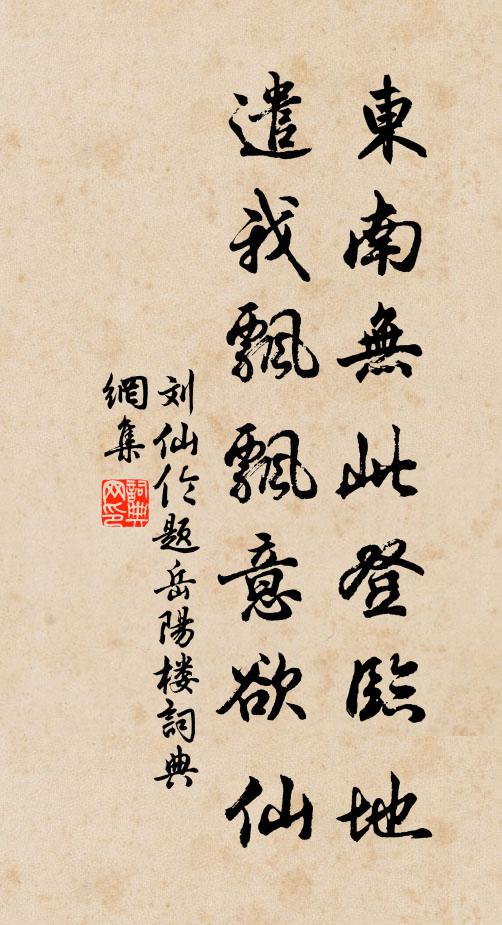 東南無此登臨地
遣我飄飄意欲仙
刘仙伦題岳陽楼詞典
網集
詞典網印